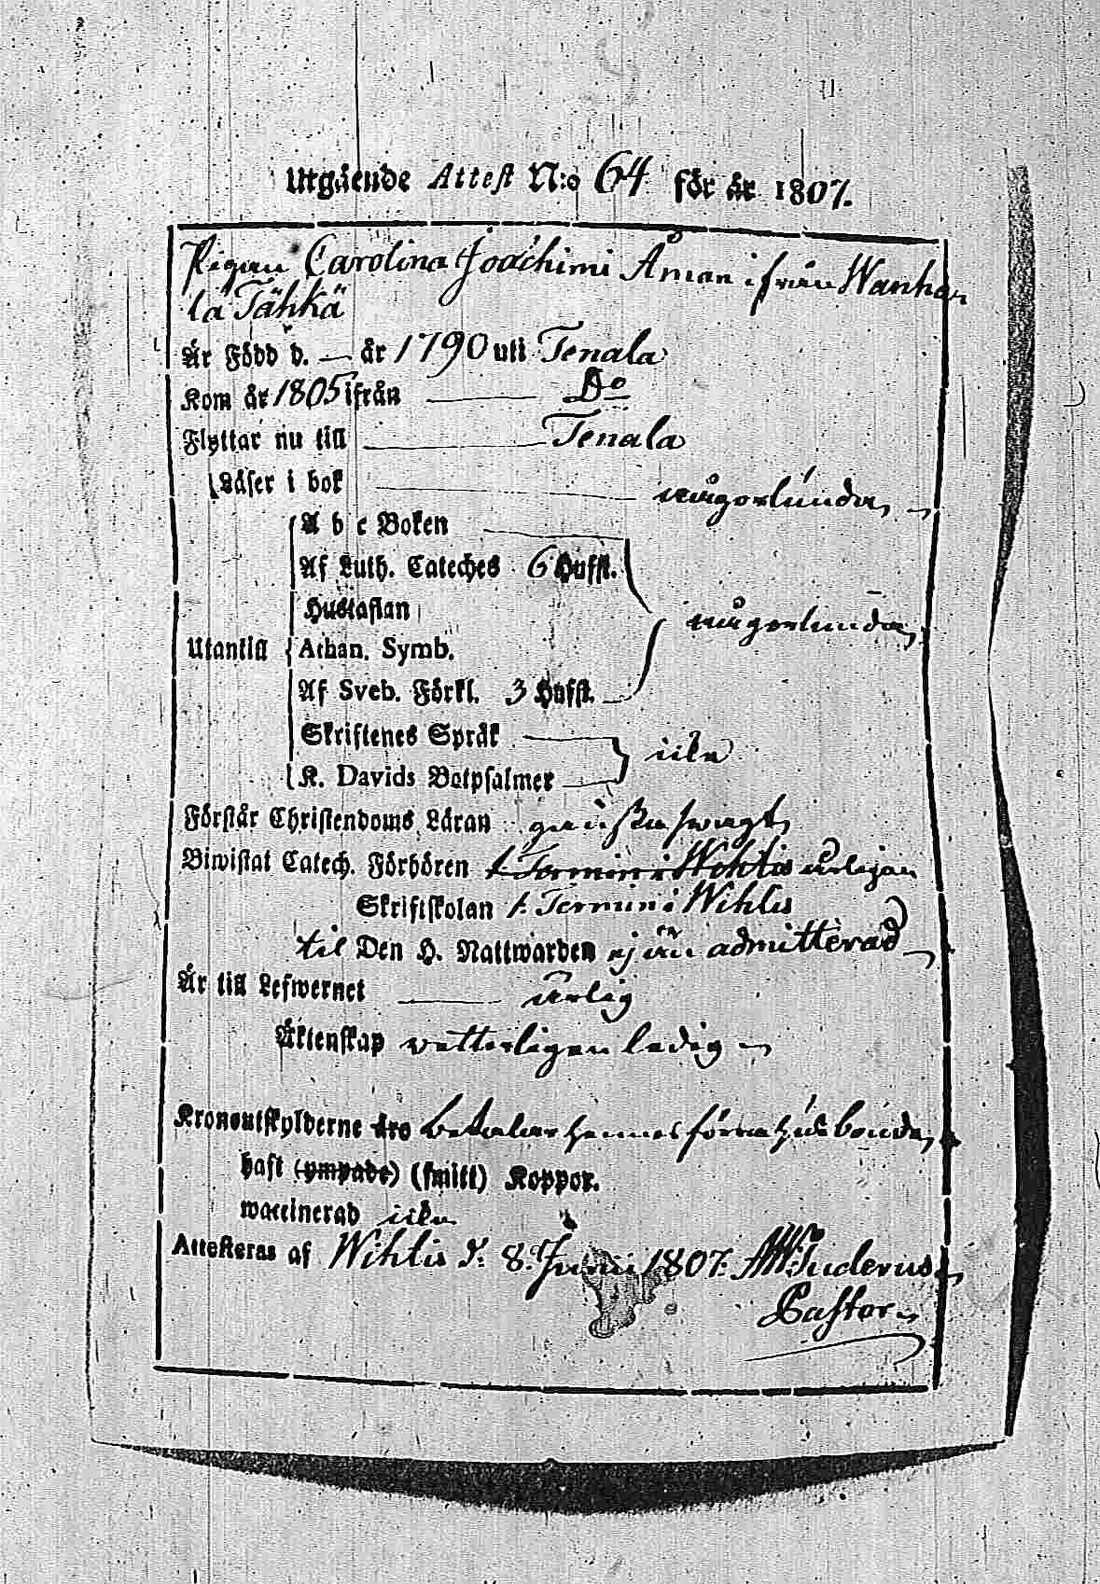 Utgående Attest N:o 64 för år 1807.
Pigan Carolina Joachimi Åman ifrån Wanhan
la Tähkä
Är Född d. — år 1790 uti Tenala
Kom år 1805 ifrån Do
Flyttar nu till Tenala
Läser i bok någorlunda
A b c Boken
Af Luth. Cateches 6 Hufst.
Hustaflan
någorlunda
Utantill Athan. Symb.
Af Sveb. Förkl. 3 Hufst.
Skriftenes Språk
icke
K. Davids Botpsalmer
Förstår Christendoms Läran ganska swagt
Biwistat Catech. Förhören 1. Termin i Wihtis årligen
Skriftskolan 1. Termin i Wihtis
til Den H. Nattwarden ej än admitterad
Är till Lefwernet ärlig
Äktenskap vetterligen ledig
Kronoutskylderne äro betalar hennes förra husbonde
haft (ympade) (smitt) Koppor.
waccinerad icke
Attesteras af Wihtis d. 8. Junii 1807.
Pastor